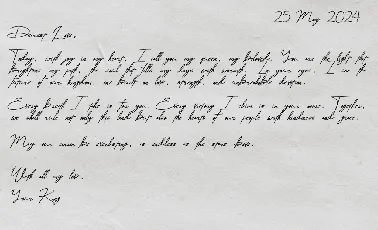 25 May 2024
Dearest Love,
Today, with joy in my heart, I call you my queen, my beloved. You are the light that
brightens my path, the that fills my days with warmth. In your eyes, I see the
future of our kingdom, one built on love, strength, and unbreakable
Every breath I take is for you. Every victory I is in your name. Together,
we shall rule not only this land but also the hearts of our people with kindness and grace.
May our love be everlasting, as endless as the stars above.
With all my love,
Your King